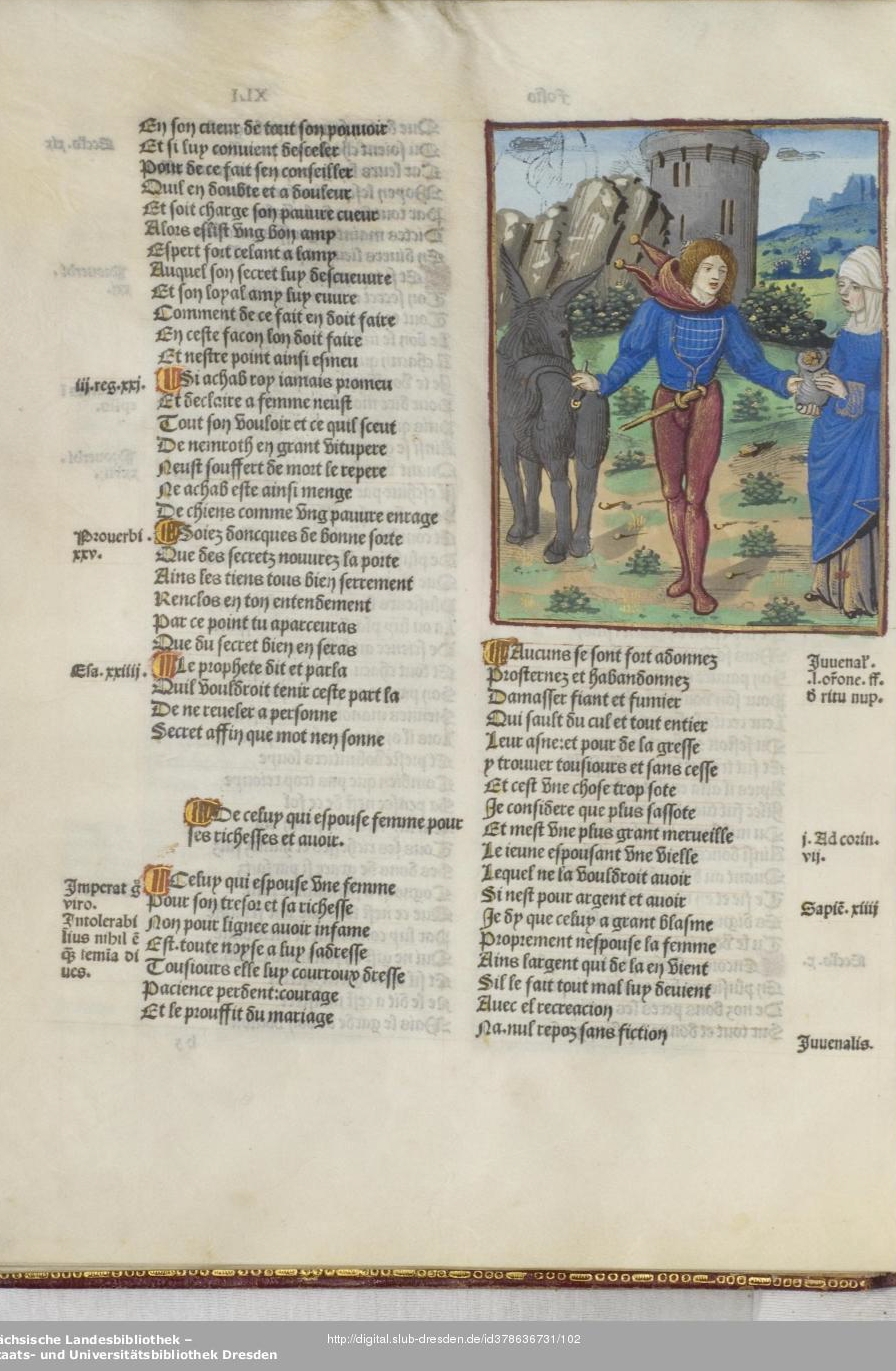 En son cueur de tout son pouuoir
Et si luy conuient desceler
Pour de ce fait sen conseiller
Quil en doubte et a douleur
Et soit charge son pauure cueur
Alors eslist vng bon amy
Espert fort celant a lamy
Auquel son secret luy descueuure
Et son loyal amy luy euure
Comment de ce fait en doit faire
En ceste facon lon doit faire
Et nestre point ainsi esmeu
iij.reg.xxj.
Si achab roy iamais promeu
Et declaire a femme neust
Tout son vouloir et ce quil sceut
De nemroth en grant vitupere
Neust souffert de mort le repere
Ne achab este ainsi menge
De chiens comme vng pauure enrage
Prouerbi.
xxv.
Soiez doncques de bonne sorte
Que des secretz nouurez la porte
Ains les tiens tous bien serrement
Renclos en ton entendement
Par ce point tu aparceuras
Que du secret bien en seras
Esa.xxiiij.
Le prophete dit et parla
Quil vouldroit tenir ceste part la
De ne reueler a personne
Secret affin que mot nen sonne
De celuy qui espouse femme pour
ses richesses et auoir.
Imperat q̃
viro.
Intolerabi
lius nihil ẽ
q̃ȝ femia di
ues.
Celuy qui espouse vne femme
Pour son tresor et sa richesse
Non pour lignee auoir infame
Est.toute noyse a luy sadresse
Tousiours elle luy courroux dresse
Pacience perdent:courage
Et le prouffit du mariage
Aucuns se sont fort adonnez
Prosternez et habandonnez
Damasser fiant et fumier
Qui sault du cul et tout entier
Leur asne:et pour de la gresse
y trouuer tousiours et sans cesse
Et cest vne chose trop sote
Je considere que plus sassote
Et mest vne plus grant merueille
Le ieune espousant vne vielle
Lequel ne la vouldroit auoir
Si nest pour argent et auoir
Je dy que celuy a grant blasme
Proprement nespouse la femme
Ains largent qui de la en vient
Sil le fait tout mal luy deuient
Auec el recreacion
Na.nul repoz sans fiction
Juuenal'.
.l.or̃one.ff.
d ritu nup.
j. Ad corin.
vij.
Sapiẽ.xiiij
Juuenalis.
ächsische Landesbibliothek –
taats- und Universitätsbibliothek Dresden
http://digital.slub-dresden.de/id378636731/102